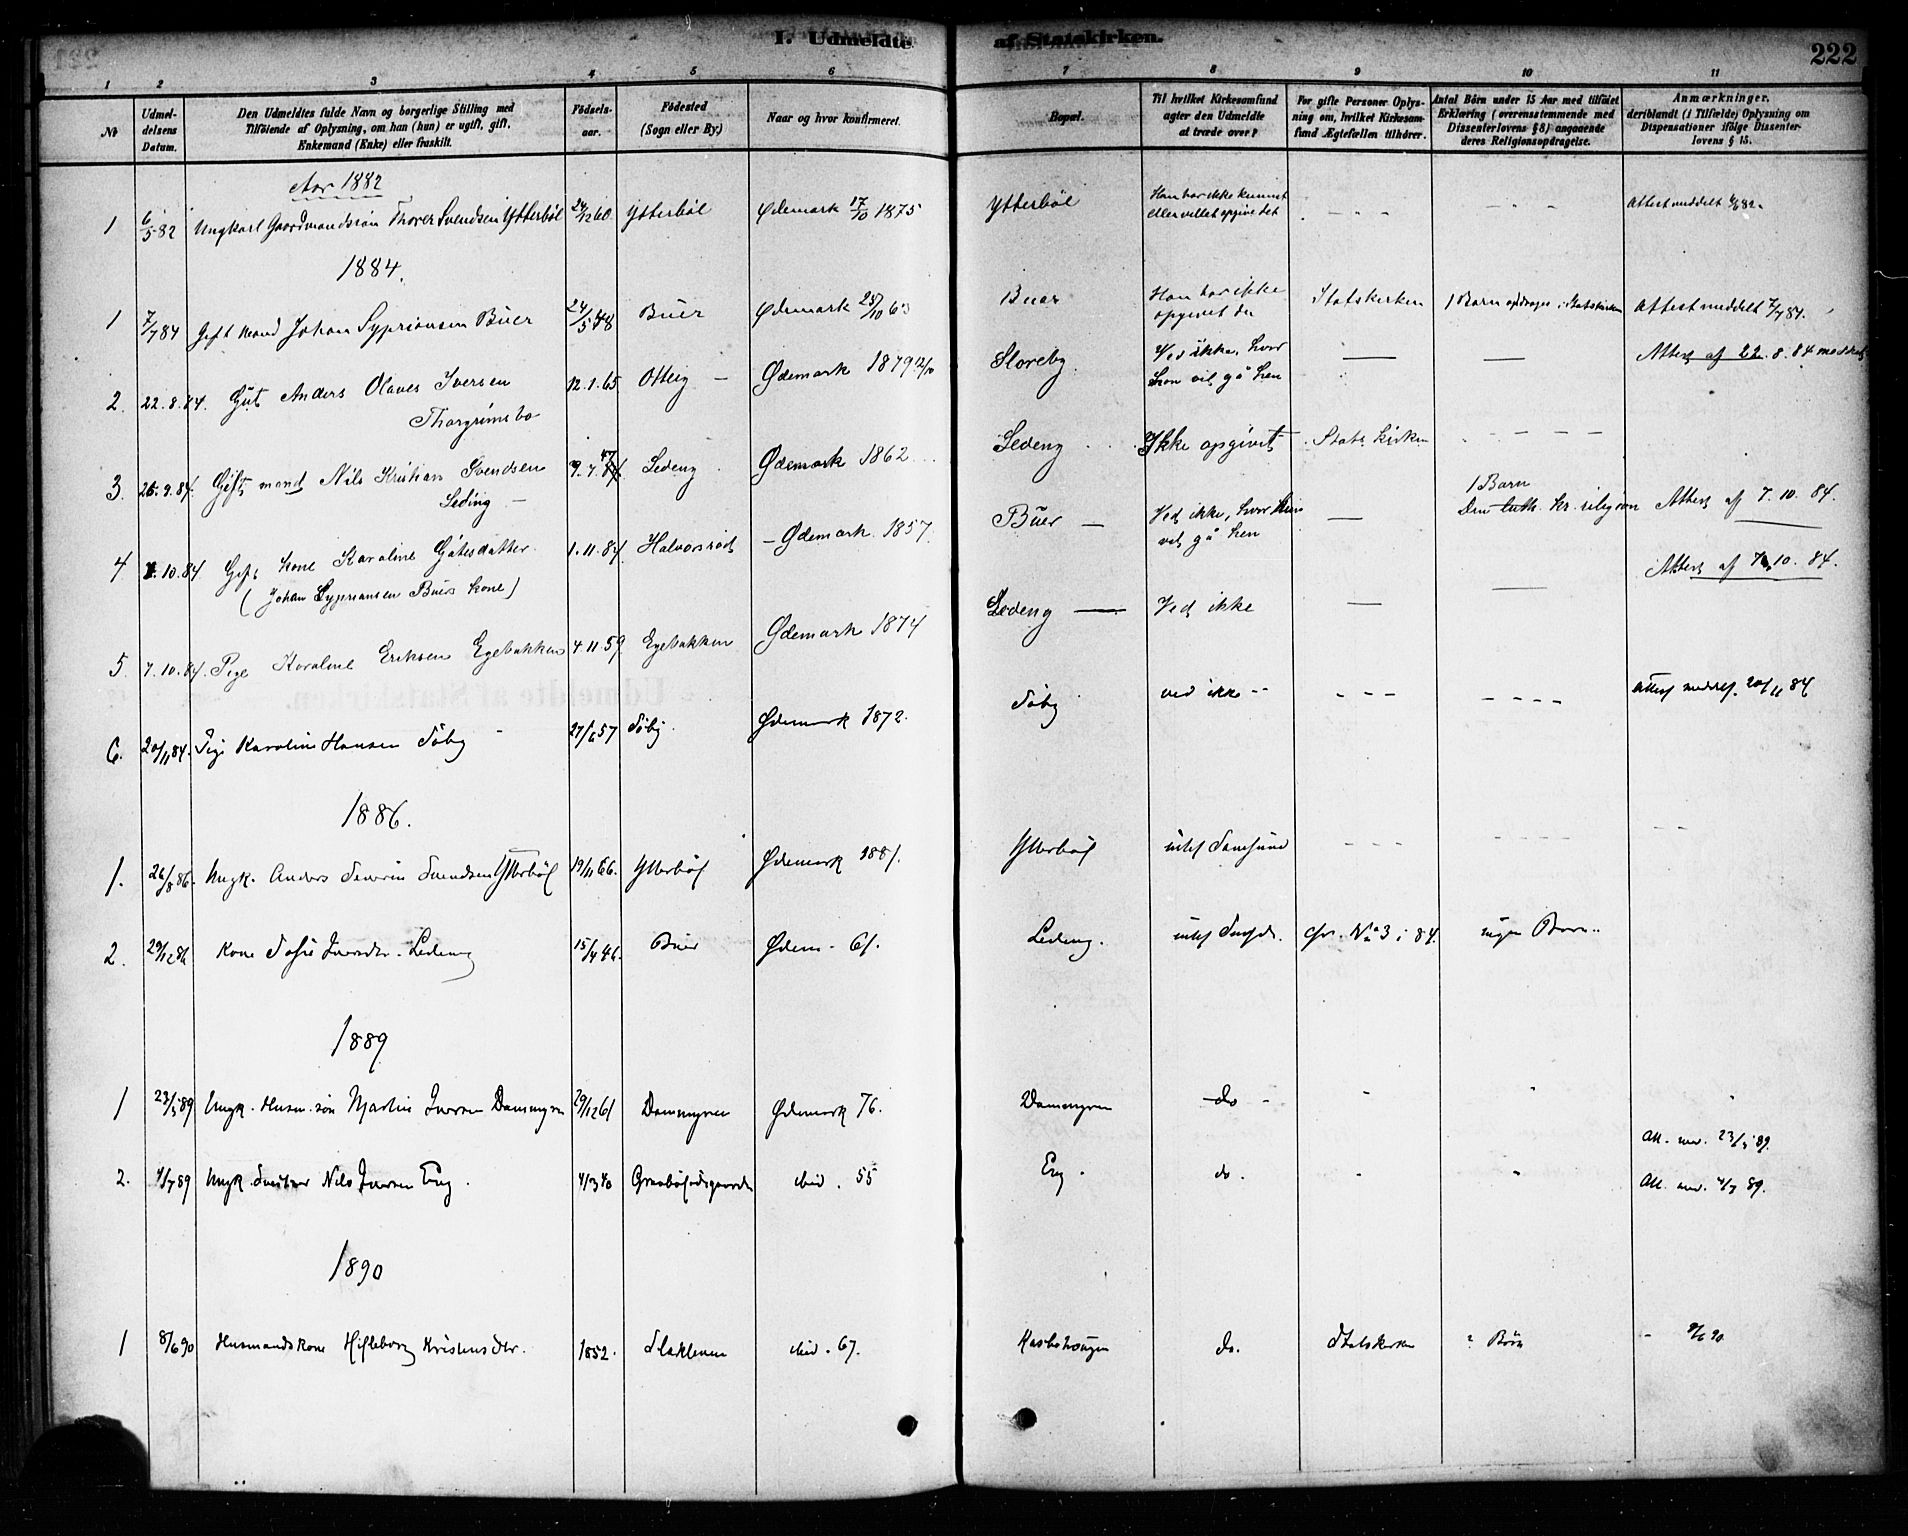 I. Udmeldte af Statskirken.
222
1 2 3 4 5 6 7 8 9 10 11
No
Udmeldelsens Datum.
Den Udmeldtes fulde Navn og borgerlige Stilling med
Tilföiende af Oplysning, om han (hun) er ugift, gift,
Enkemand (Enke) eller fraskilt.
Födselsaar.
Födested
(Sogn eller By.)
Naar og hvor konfirmeret.
Bopæl.
Til hvilket Kirkesamfund
agter den Udmeldte
at træde over?
For gifte Personer Oplysning om, hvilket Kirkesamfund Ægtefællen tilhörer.
Antal Börn under 15 Aar med tilföiet
Erklæring (overensstemmende med
Dissenterlovens § 8) angaaende
deres Religionsopdragelse.
Anmærkninger,
deriblandt (i Tilfælde) Oplysning om
Dispensationer ifölge Dissenterlovens § 15.
Aar 1882
1 6/5 82 Ungkarl Gaardmandssøn Thorer Svendsen Ytterböl 24/12 60 Ytterböl Ødemark 17/10 1875 Ytterböl Han har ikke kunnet
eller villet opgive det - - - - - - Attest meddelt 6/5 82.
1884.
1 7/7 84 Gift Mand Johan Sypriansen Buer 24/5 48 Buer Ødemark 25/10 63 Buer Han har ikke
opgivet det Statskirken 1 Barn opdrages i Statskirken Attest meddelt 7/7 84.
2. 22.8.84. Gut Anders Olaves Iversen
Thorgrimsbo 12.1.65 Otteig - Ødemark 1879 12/10 Storeby. Ved ikke, hvor
han vil gå hen — — Attest af 22.8.84 meddelt
3. 26.9.84. Gift mand Nils Kristian Svendsen
Leding - 9.7.47 Ledeng. Ødemark 1862 Ledeng Ikke opgivet Statskirken - - - -
4 7.10.84 Gift kone Karoline Gåtesdatter.
(Johan Sypriansen Buers kone) 1.11.84 Halvorsröd - Ødemark. 1857. Büer — Ved ikke, hvor hun
vil gå hen — 1 Barn
Den luth. kr. religion Attest af 7.10.84.
5 7.10.84. Pige Karoline Eriksen Egebakken 4.11.59 Egebakken Ødemark 1874 Ledeng — Ved ikke — — Attest af 7.10.84.
6. 20/11 84. Pige Karoline Hansen Töby 27/6 57 Töby. Ødemark 1872. Töby ved ikke - - - - - - - - - Attest meddelt 20/11 84
1886.
1. 26/8 86. Ungk. Anders Severin Svendsen Ytterböl 19/11 66. Ytterböl Ødemark 1881. Ytterböl intet Samfund - - - - - - - - -
2. 29/12 86 Kone Sofie Iversdtr. Ledeng 15/4 46. Buer Ødem - 61. Ledeng. intet Samfd. cfr. No 3 i 84. ingen Börn..
1889
1 23/5 89 Ungk. Husm.sön Martin Iversen Dammyren 29/12 61 Dammyren Ødemark 76. Dammyren do - " " "
Att. med. 23/5 89.
2. 4/7 89 Ungk. Nils Iversen Eng. 4/3 40 ibid. 55 Eng. do. " " Att. med. 4/7 89.
1890
1 8/6 90 Husmandskone Kristensdtr. 1852. ibid. 67. do. Statskirken 2 Börn - 8/6 90